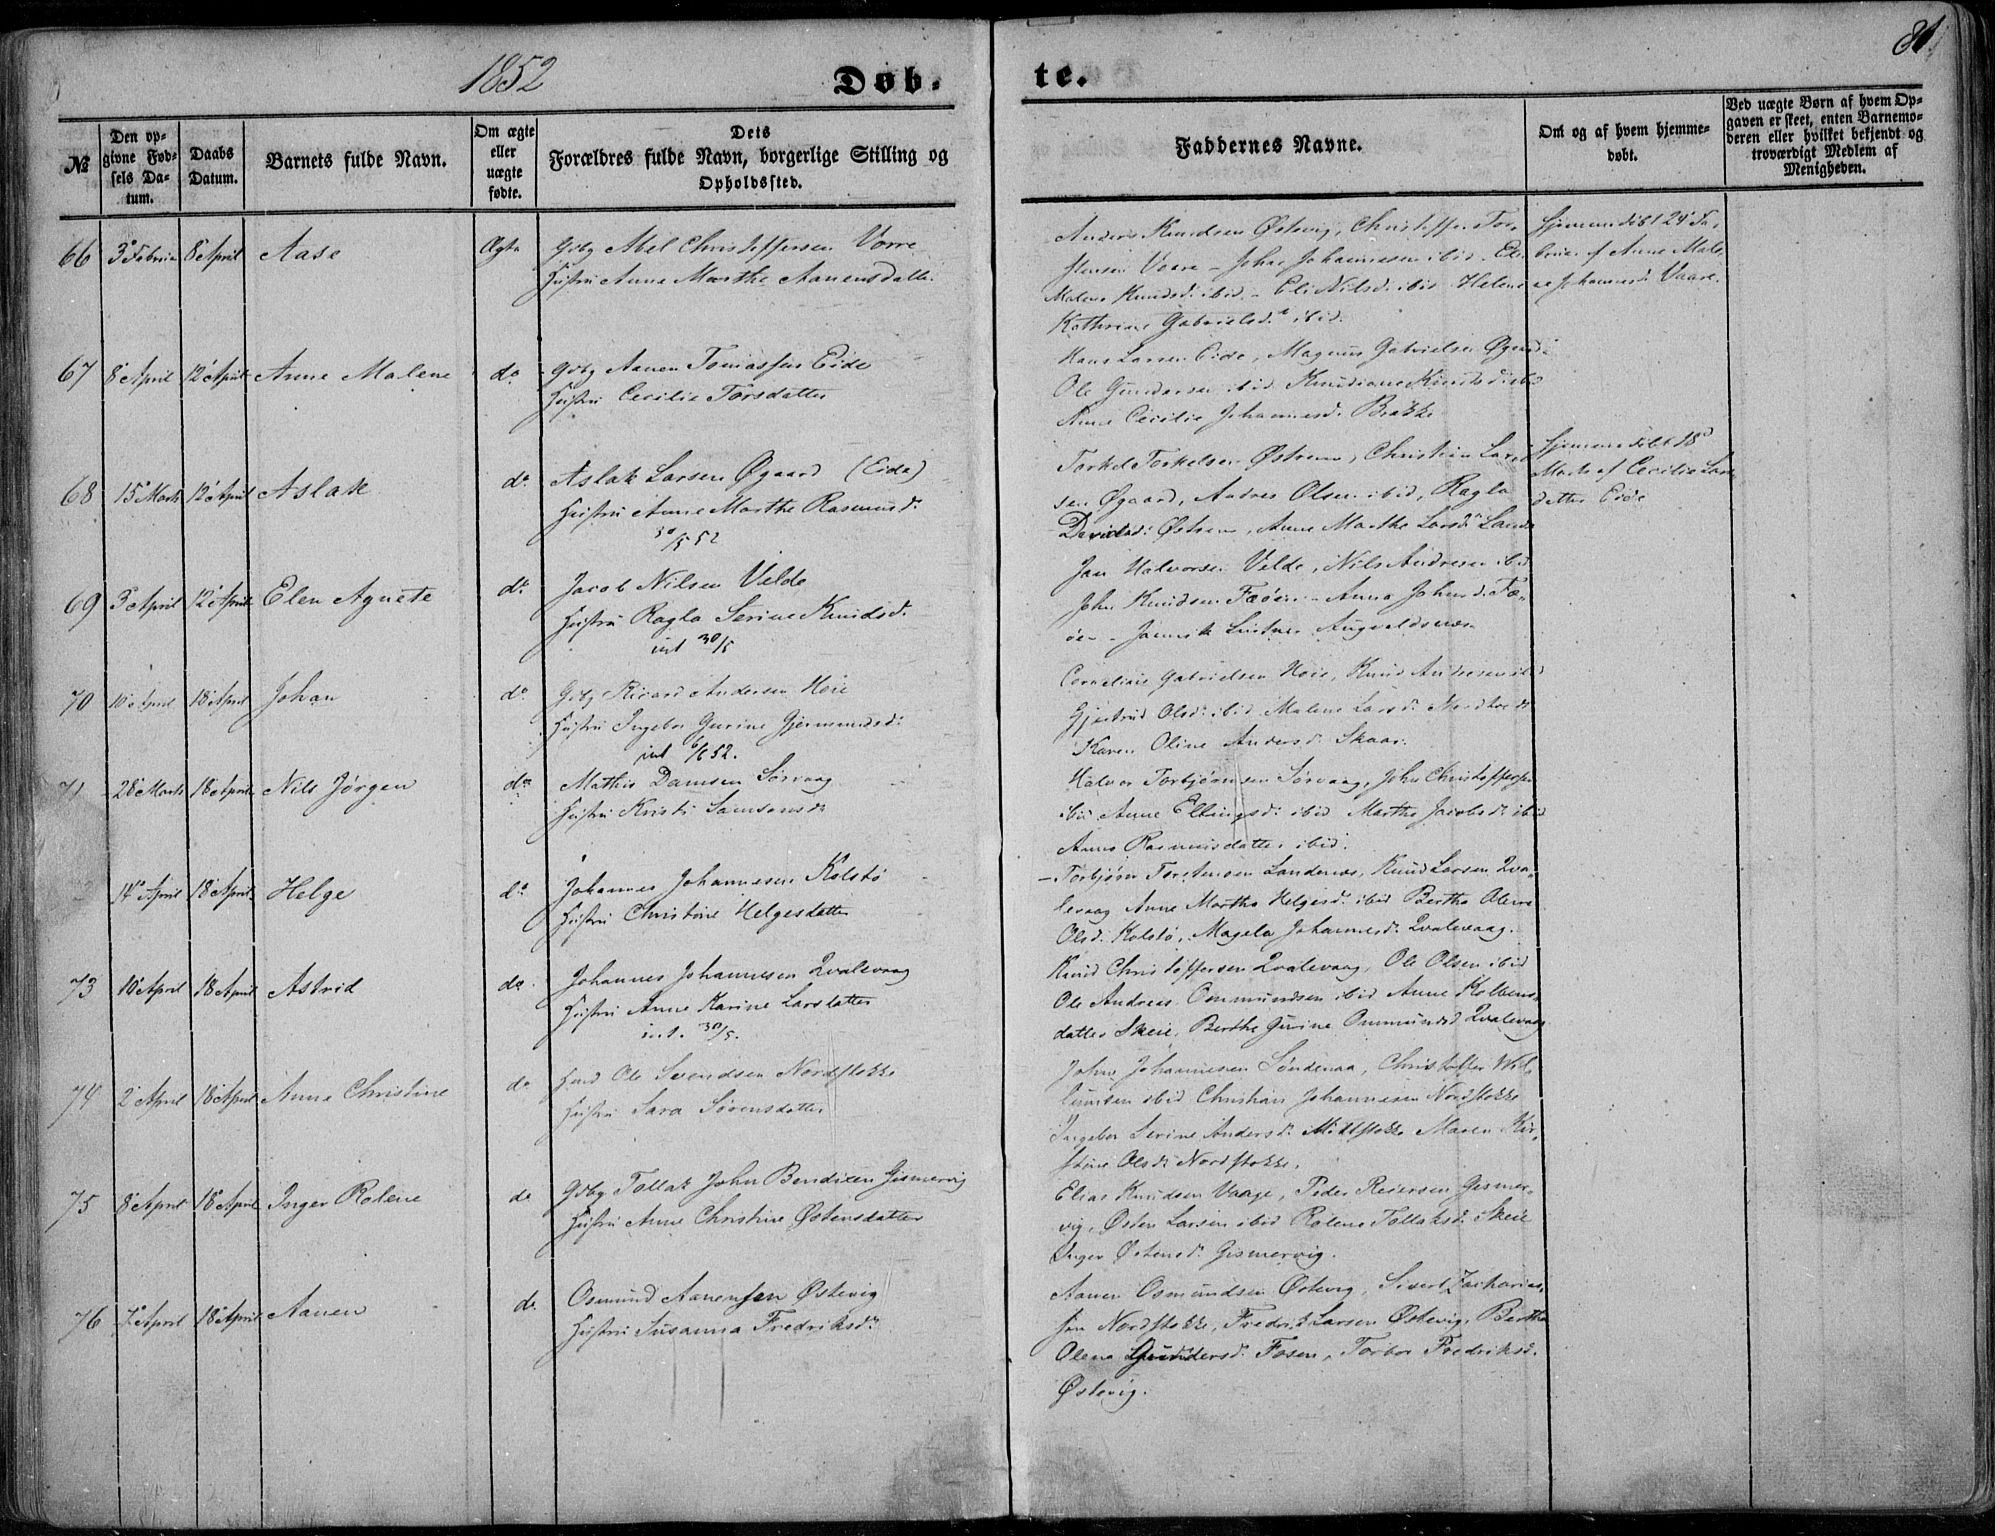 1852 Døb- te. 81
№ Den opgivne Fødsels Datum. Daabs Datum. Barnets fulde Navn. Om ægte eller uægte fødte. Dets Forældres fulde Navn, borgerlige Stilling og Opholdssted. Faddernes Navne. Om og af hvem hjemmedøbt. Ved uægte Børn af hvem Opgaven er skeet, enten Barnemoderen eller hvilket bekjendt og troværdigt Medlem af Menigheden.
66 3 Februar 8 April Aase Ægte Gdbg Abel Christoffersen Vorre
Hustru Anne Marthe Aanensdatter
Anders Knudsen Østevig, Christoffer Tor-
stensen Vaare - Johan Johannesen ibid - Elen
Malene Knudsd. ibid - Eli Nilsd. ibid Helene
Kathrine Gabrielsd. ibid.
Hjemmedøbt 24 Fe-
bruar af Anne Male-
ne Johannesd. Vaare.
67 8 April 12 April Anne Malene do Gdbg Aanen Tomassen Eide
Hustru Cecilie Torsdatter
Hans Larsen Eide, Magnus Gabrielsen Øgaard
Ole Gundersen ibid Knudiane Knudsd ibid
Anne Cecilie Johannesd. Brække
68 15 Marts 12 April Aslak do Aslak Larsen Øgaard (Eide)
Hustru Anne Marthe Rasmusd.
30/5 52
Torkel Torkelsen Østrem, Christian Lar-
sen Øgaard, Andreas Olsen ibid, Ragla
Davidsd. Østrem, Anne Marthe Larsd.
Hjemmedøbt 18
Marts af Cecilie Lars-
datter Eide
69 5 April 12 April Elen Agnete do Jacob Nilsen Velde
Hustru Ragla Serine Knudsd.
int 30/5
Jan Halvorsen Velde, Nils Andresen ibid
John Knudsen Fæøen - Anna Johnsd. Fæ-
øen - Augvaldsnæs
70 10 April 18 April Johan do Gdbg Rivard Andersen Høie
Hustru Ingebor Gurine Gjermundsd.
int 6/6 52.
Cornelius Gabrielsen Høie, Knud Andersen ibid
Gjertrud Olsd. ibid Malene Larsd.
Karen Oline Andersd. Skaar.
71 28 Marts 18 April Nils Jørgen do Mathis Danisen Sørvaag
Hustru Kristi Samsonsd.
Halvor Torbjørnsen Sørvaag, John Christoffersen
ibid Anne Ellingsd. ibid Marthe Jacobsd. ibid
Anne Rasmusdatter ibid.
14 April 18 April Helge do Johannes Johannesen Kolstø
Hustru Christine Helgesdatter
Torbjørn Torstensen Landenæs, Knud Larsen Qva-
levaag Anne Marthe Helgesd. ibid Berthe Olene
Olsd. Kolstø, Magela Johannesd. Qvalevaag.
73 10 April 18 April Astrid do. Johannes Johannesen Qvalevaag
Hustru Anne Karine Larsdatter
int. 30/5.
Knud Christoffersen Qvalevaag, Ole Olsen ibid
Ole Andreas Ommundsen ibid Anne Kolbens-
datter Skeie, Berthe Gurine Ommundsd Qvalevaag
74 2 April 18 April Anne Christine do Ole Svendsen Nordstokke
Hustru Sara Sørensdatter
John Johannesen Søndenaa, Christoffer Wil-
lumsen ibid Christian Johannesen Nordstokke
Ingebor Serine Andersd. Midtstokke Maren Kir-
stine Olsd. Nordstokke.
75 8 April 18 April Inger Rolene do Gdbg Tollak John Bendixen Gismervig
Hustru Anne Christine Østensdatter
Elias Knudsen Vaage, Peder Reiersen Gismer-
vig, Østen Larsen ibid Rolene Tollaksd. Skeie
Inger Østensd. Gismervig.
76 7 April 18 April Aanen do Osmund Aanensen Østevig
Hustru Susanna Fredriksd.
Aanen Osmundsen Østevig, Sivert Zacharias-
sen Nordstokke, Fredrik Larsen Østevig, Berthe
Olena Gundersd. Fosen, Torbor Fredriksd.
Østevig.